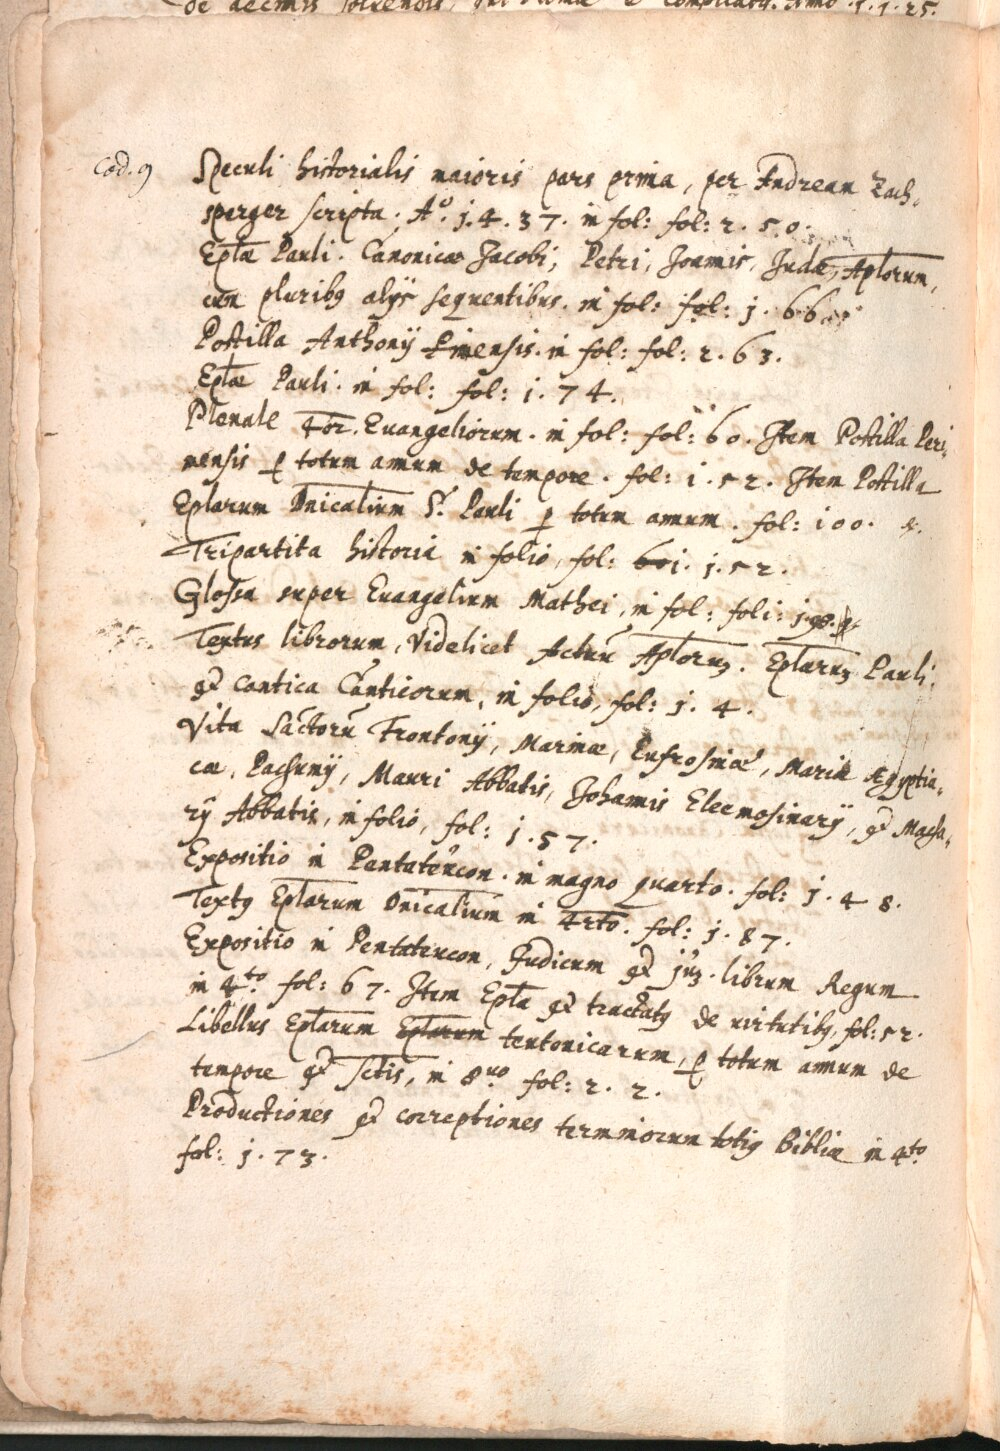 de decimis solvendis, complicatq. Anno .1.1.25.
Cod. 9
Speculi historialis maioris pars prima, per Andream Zach-
sperger scripta. Aº. j.4.37. in fol: fol: 2.50.
Eplæ Pauli. Canonicæ Jacobi, Petri, Joannis, Judæ, Aplorum,
cum pluribq alijs sequentibus. in fol: fol: j.66.
Postilla Anthonij Pinensis. in fol: fol: 2.63.
Eplæ Pauli. in fol: fol: i.74.
Plenale 4or. Evangeliorum. in fol: fol: 60. Item Postilla Peri-
nensis p totum annum de tempore. fol: i.52. Item Postilla
Eplarum Dnicalium S. Pauli p totum annum. fol: i00.
Tripartita historia in folio, fol: j.52.
Glossa super Evangelium Mathei, in fol: foli:
Textus librorum, Videlicet Actuū Aploruȝ. Eplaruȝ Pauli,
et cantica Canticorum, in folio, fol: j.4.
Vita Sāctorū Frontonij, Marinæ, Eufrosinæ, Mariæ Ægyptia-
cæ, Pachumij, Mauri Abbatis, Johannis Eleemosinarij, et Macha-
rij Abbatis, in folio, fol: j.57.
Expositio in Pantateucon. in magno quarto. fol: j.48.
Textq Eplarum Dnicalium in 4rto. fol: j.87.
Expositio in Pentateucon, Judicum et juȝ. librum Regum
in 4to. fol: 67. Item Epla et tractatq de virtutibq, fol: 52.
Libellus Eplarum Eplarum teutonicarum, p totum annum de
tempore et Sctis, in 8uo fol: 2.2.
Productiones et correptiones terminorum totiq Bibliæ in 4to
fol: j.73.